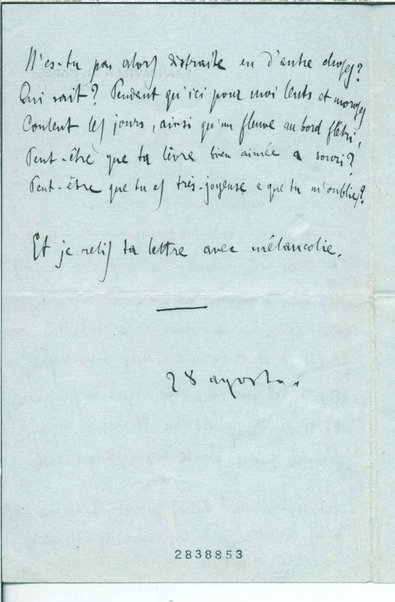 N'es-tu pas alors distraite en d'autre choses?
Qui sait? Pendent qu'ici pour moi lents et mornes
Coulent les jours, ainsi qu'un fleuve au bord flétri,
Peut-être que ta lèvre bien aimée a souri?
Peut-être que tu es très-joyeuse e que tu m'oublies?
Et je relis ta lettre avec mélancolie.
28 agosto.
2838853